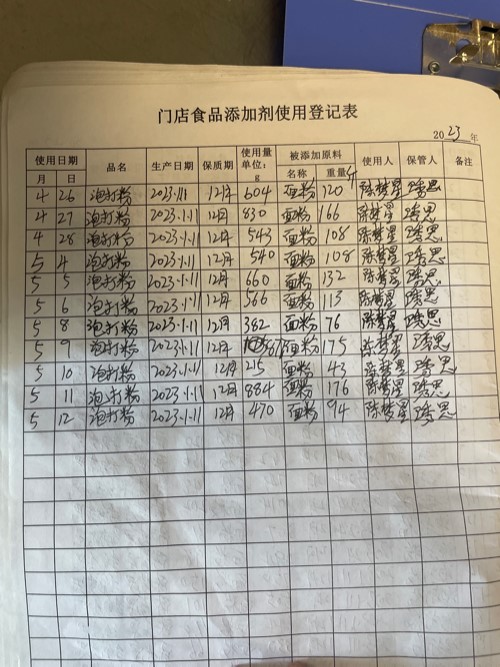 门店食品添加剂使用登记表
2023年
使用日期 品名 生产日期 保质期 使用量单位:g 被添加原料 使用人 保管人 备注
月 日 名称 重量 斤
4 26 泡打粉 2023.1.11 12月 604 面粉 120 陈梦星
4 27 泡打粉 2023.1.11 12月 830 面粉 166 陈梦星
4 28 泡打粉 2023.1.11 12月 543 面粉 108 陈梦星
5 4 泡打粉 2023.1.11 12月 540 面粉 108 陈梦星
5 5 泡打粉 2023.1.11 12月 660 面粉 132 陈梦星
5 6 泡打粉 2023.1.11 12月 566 面粉 113 陈梦星
5 8 泡打粉 2023.1.11 12月 382 面粉 76 陈梦星
5 9 泡打粉 2023.1.11 12月 面粉 175 陈梦星
5 10 泡打粉 2023.1.11 12月 215 面粉 43 陈梦星
5 11 泡打粉 2023.1.11 12月 884 面粉 176 陈梦星
5 12 泡打粉 2023.1.11 12月 470 面粉 94 陈梦星